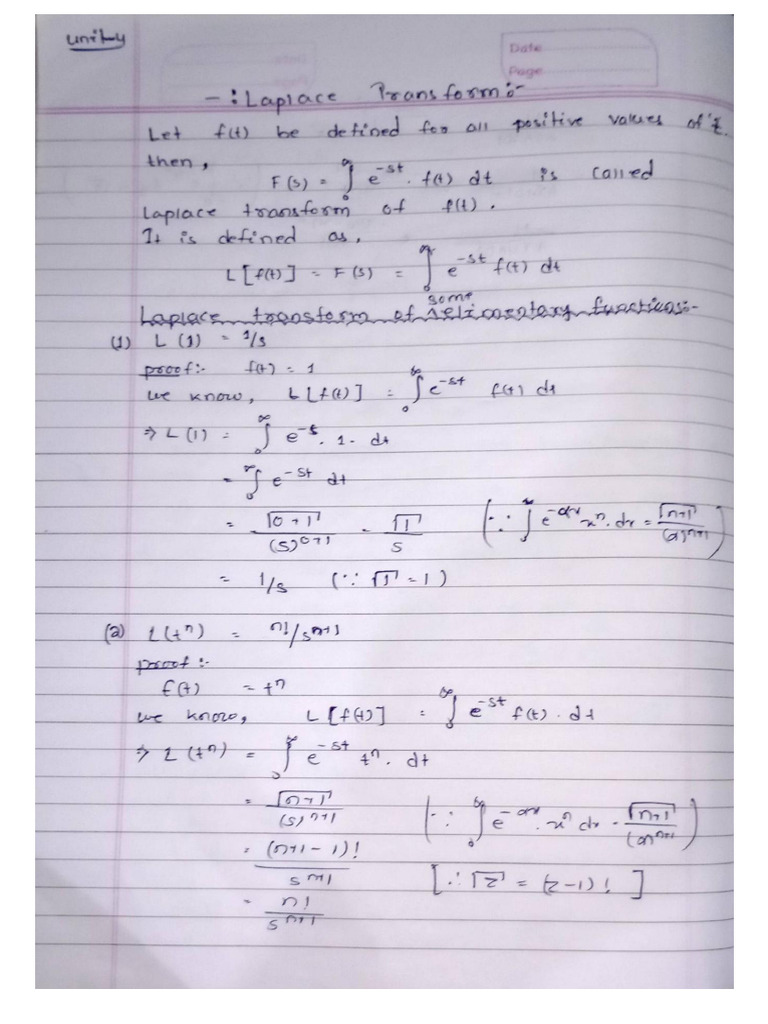 unit-4
Date
Page
-: Laplace Transform :-
Let f(t) be defined for all positive values of 't.
then,
F(s) = ∫₀^∞ e^-st. f(t) dt is called
Laplace transform of f(t).
It is defined as,
L[f(t)] = F(s) = ∫₀^∞ e^-st f(t) dt
some
Laplace transform of elementary functions:-
(1) L(1) = 1/s
proof:- f(t) = 1
we know, L[f(t)] = ∫₀^∞ e^-st f(t) dt
⇒ L(1) = ∫₀^∞ e^-s. 1. dt
= ∫₀^∞ e^-st dt
= Γ0+1 / (s)^0+1 = Γ1 / s (∵ ∫₀^∞ e^-ax x^n. dx = Γn+1 / (a)^n+1)
= 1/s (∵ Γ1 = 1)
(2) L(t^n) = n!/s^n+1
proof :-
f(t) = t^n
we know, L[f(t)] = ∫₀^∞ e^-st f(t). dt
⇒ L(t^n) = ∫₀^∞ e^-st t^n. dt
= Γn+1 / (s)^n+1 (∵ ∫₀^∞ e^-ax. x^n dx = Γn+1 / (a)^n+1)
= (n+1-1)! / s^n+1 [∵ Γz = (z-1)! ]
= n! / s^n+1